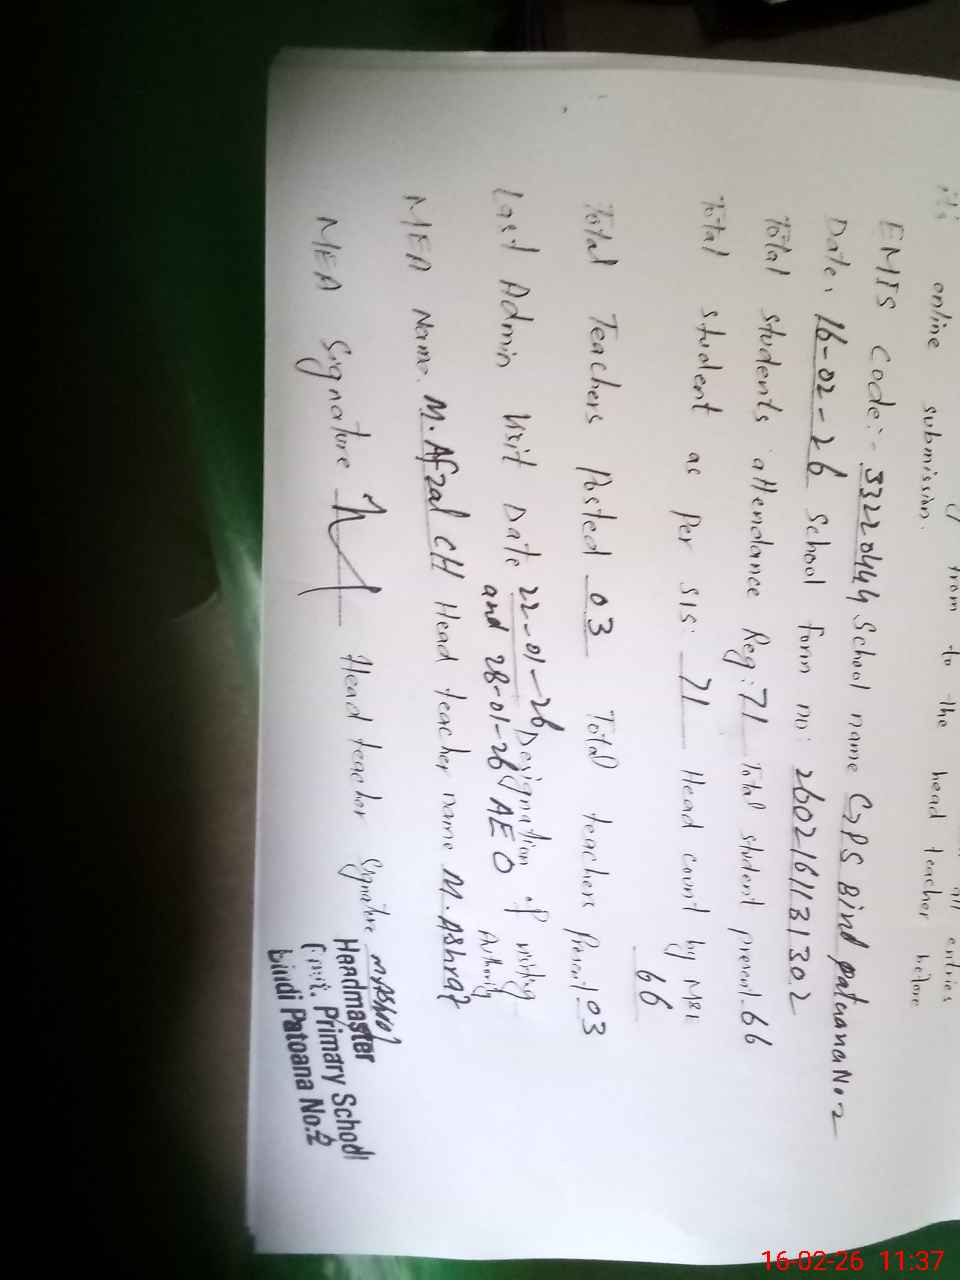 all entries
from to the head teacher before
its online submission.
EMIS Code:- 33220444 School name GPS Bind patuana No 2
Date: 16-02-26 School form no: 2602161131302
Total students attendance Reg: 71 Total student present 66
Total student as per SIS: 71 Head count by MEA
66
Total Teachers Posted 03 Total teachers Present 03
Last Admin Visit Date 22-01-26 Designation of visiting
and 28-01-26 AEO Authority
MEA Name. M. Afzal CH Head teacher name M. Ashraf
MEA Signature Head teacher Signature
Headmaster
Govt. Primary School
Bindi Patoana No.2
16-02-26 11:37